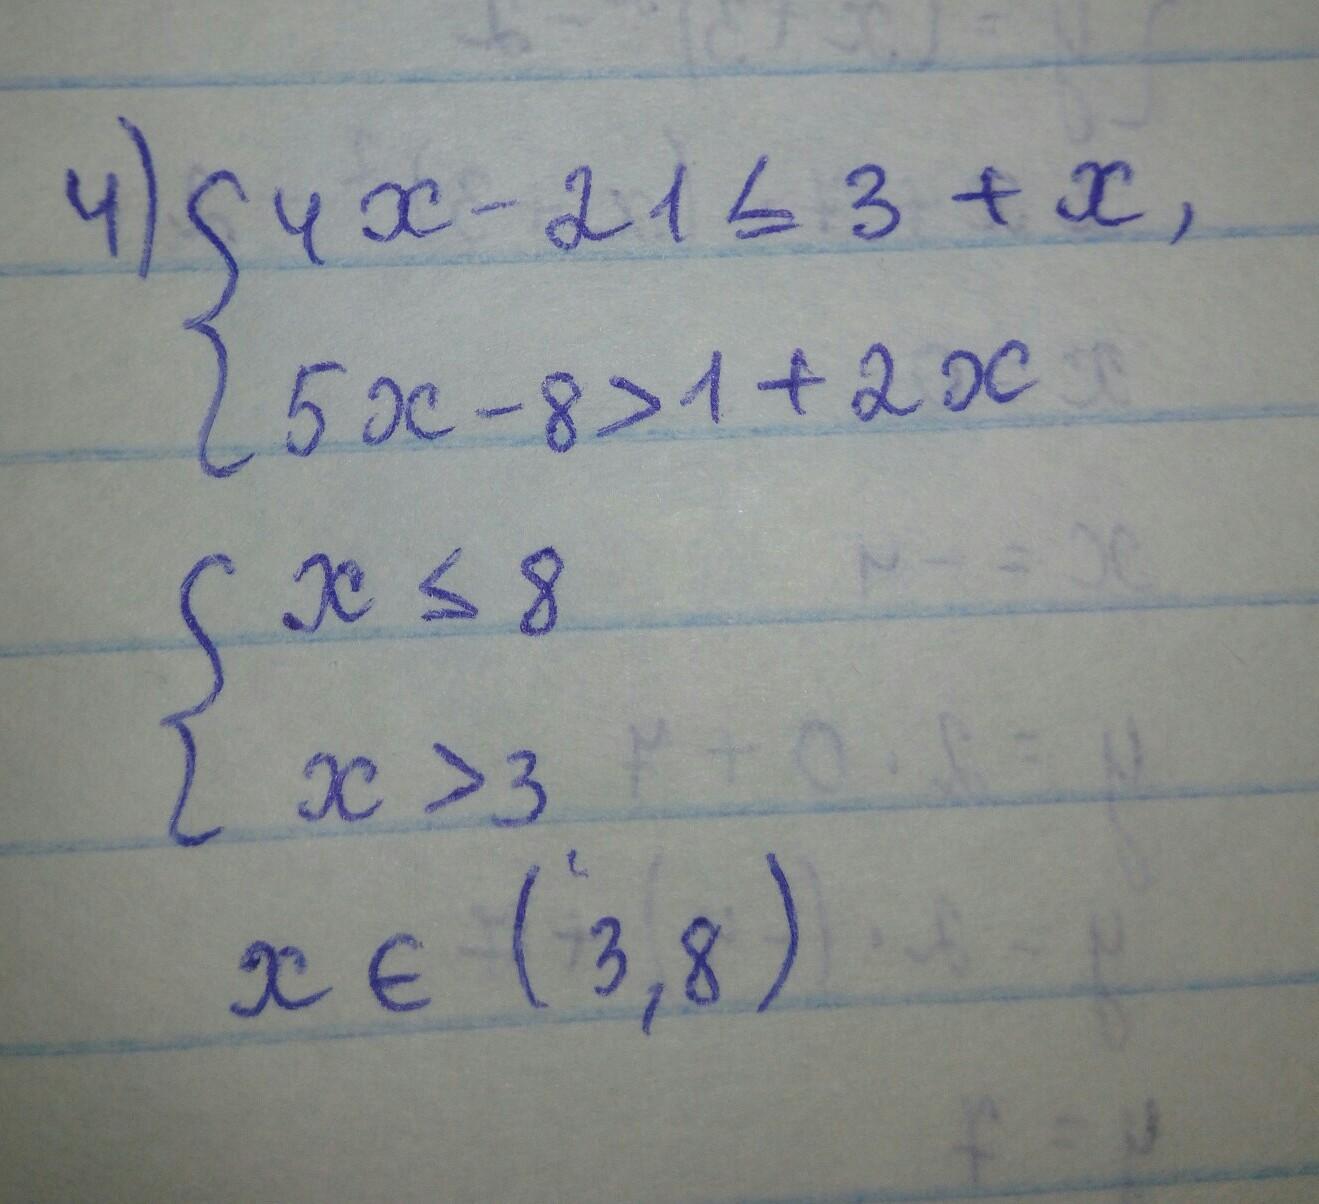 4) { 4x - 21 ≤ 3 + x,
5x - 8 > 1 + 2x
{ x ≤ 8
x > 3
x ∈ (3,8)